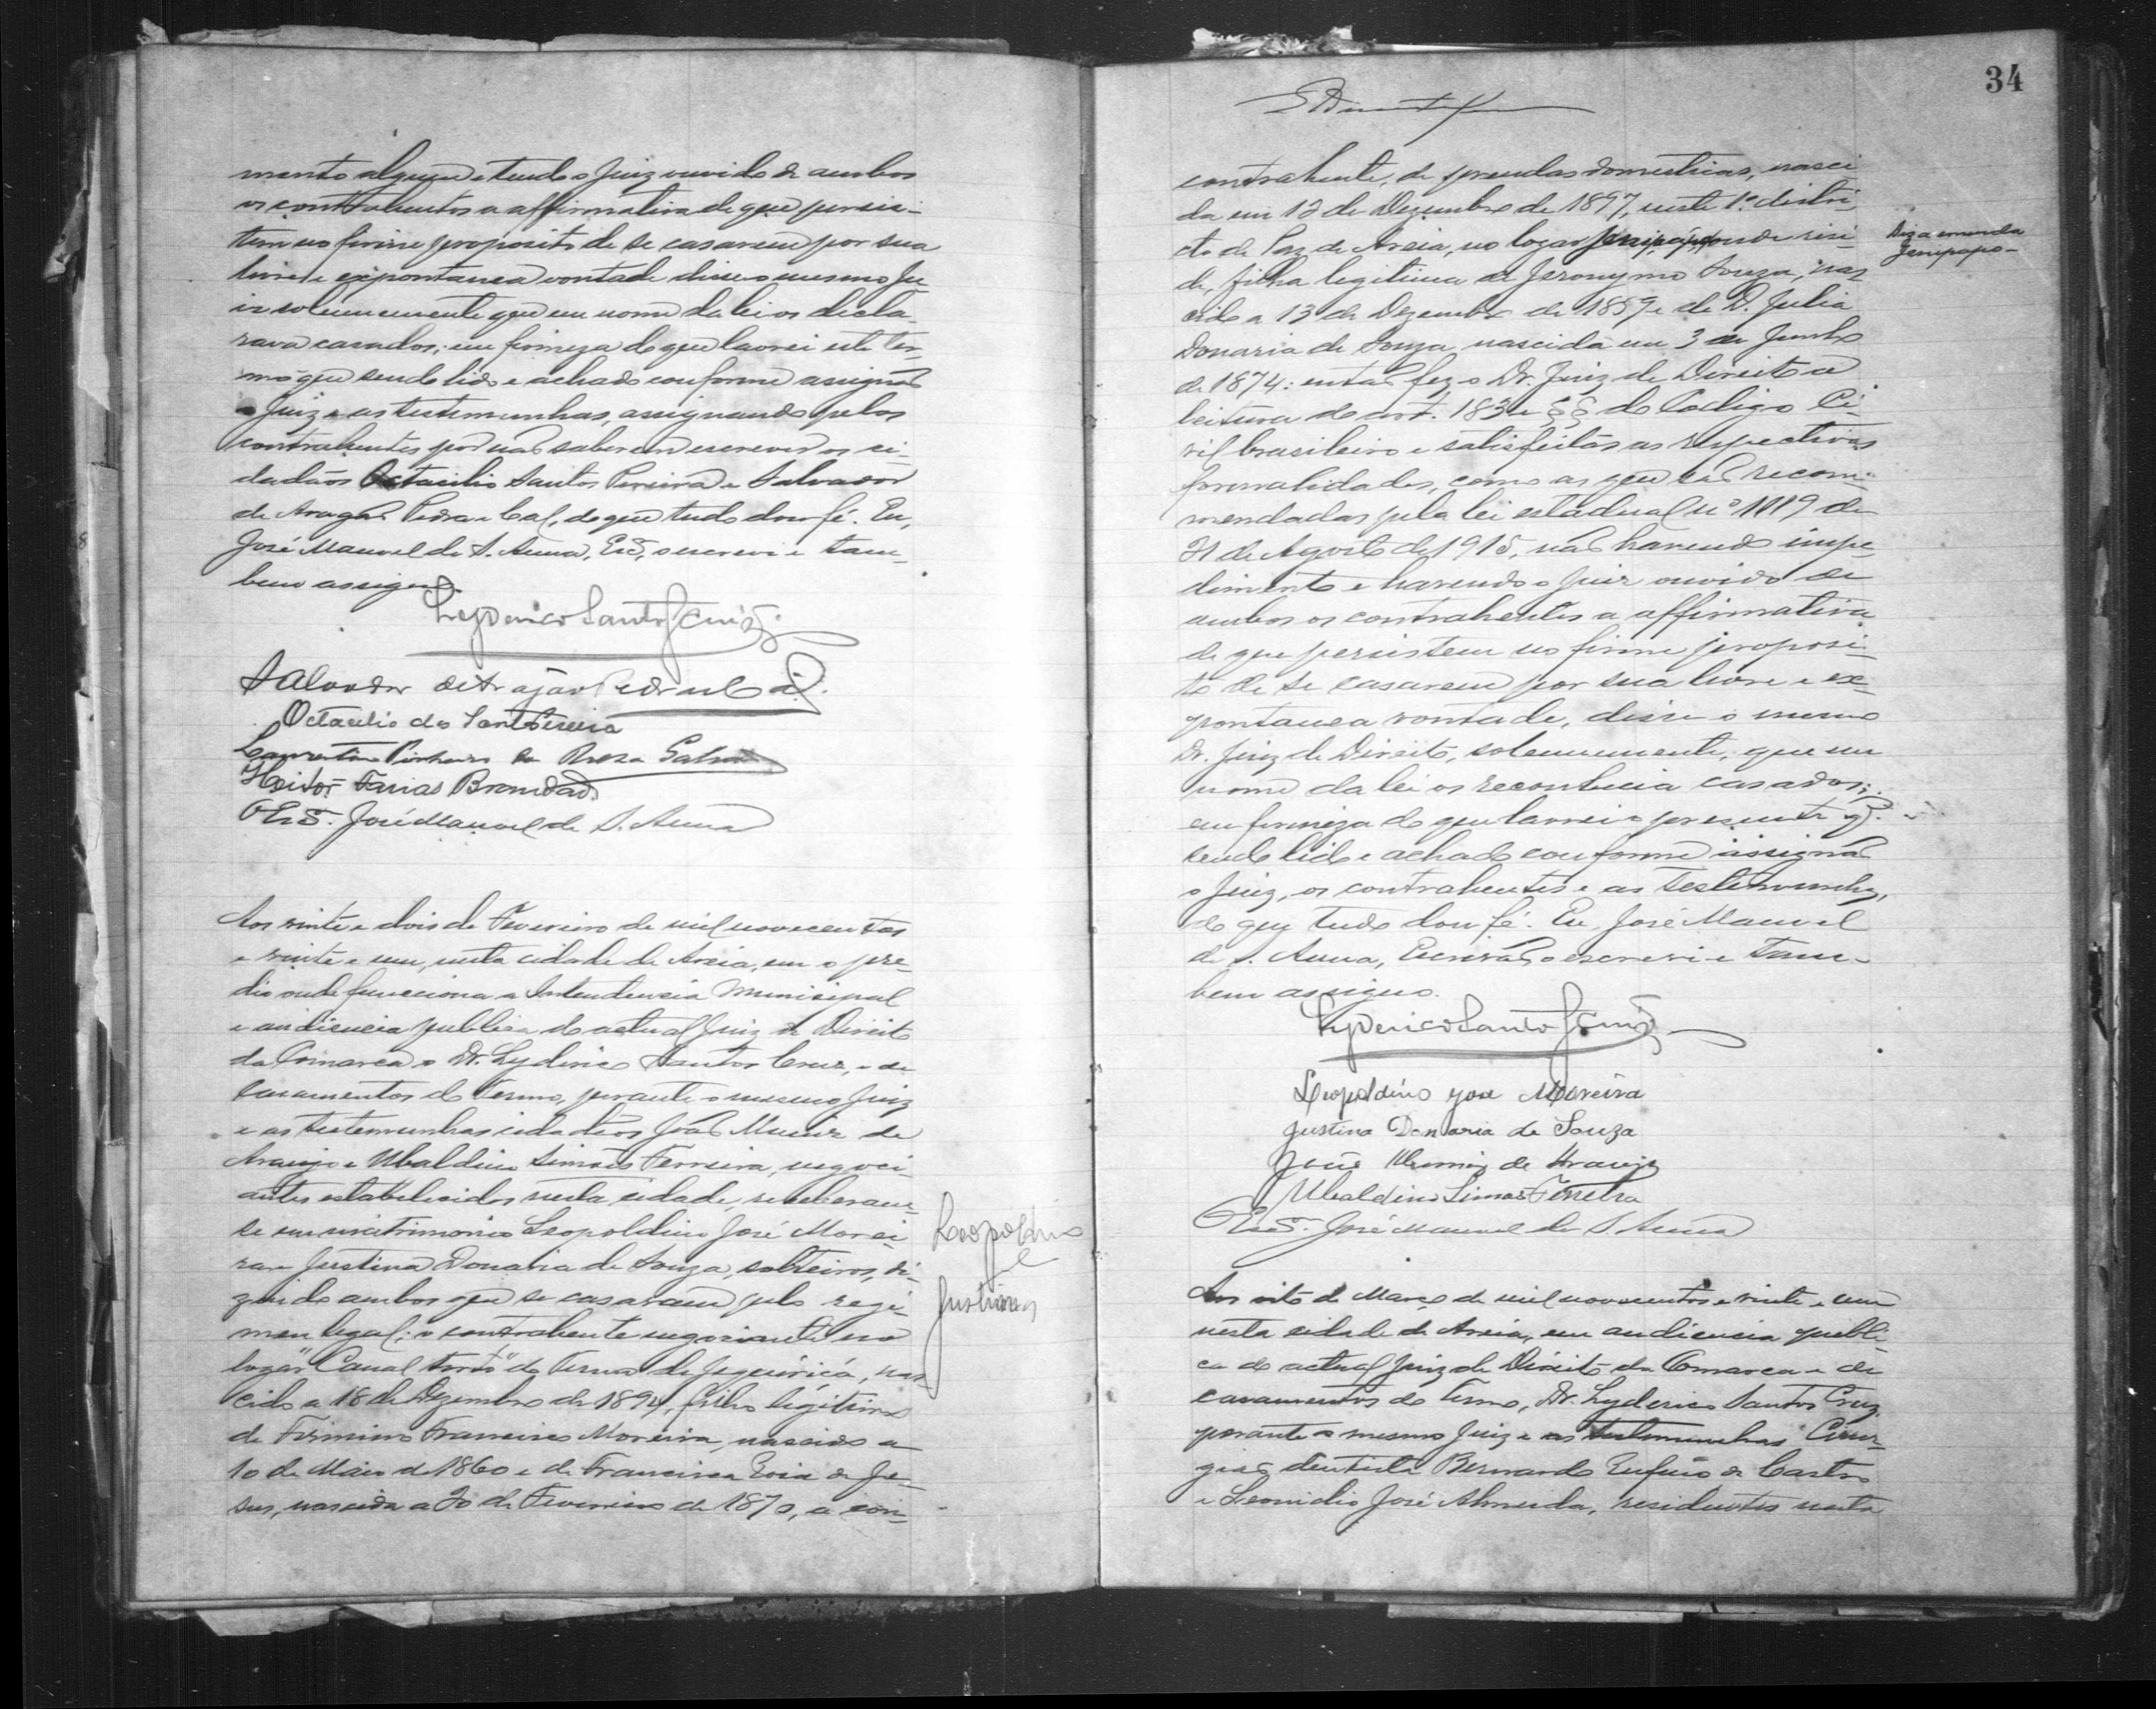 mento algum e tendo o Juiz ouvido de ambos
os contrahentes a affirmativa de que persis-
tem no firme proposito de se casarem por sua
livre e expontanea vontade disse o mesmo Ju
iz solemnemente que em nome da lei os decla-
rava casados; em firmeza do que lavrei este ter-
mo que sendo lido e achado conforme assignão
o Juiz e as testemunhas, assignando pelos
contrahentes por não saberem escrever os ci-
dadãos Octacilio Santos Pereira e Salvador
de Aragão Pedra e Cal, do que tudo dou fé. Eu,
José Manoel de S. Anna, Esc, o escrevi e tam-
bem assigno.
Lyderico Santos Cruz
Salvador de Aragão Pedra e Cal.
Octacilio dos Santos Pereira
Pinheiro da Galvão
Heitor Farias Brandão
O Esc. José Manoel de S. Anna
Aos vinte e dois de Fevereiro de mil novecentos
e vinte e um, nesta cidade de Areia, em o pre-
dio onde funcciona a Intendencia Municipal
e audiencia publica do actual Juiz de Direito
da Comarca o Dr. Lyderico Santos Cruz, e de
casamentos do Termo, perante o mesmo Juiz
e as testemunhas cidadãos João Muniz de
Araujo e Ubaldino Simões Ferreira, negoci-
antes estabelecidos nesta cidade, receberam-
se em matrimonio Leopoldino José Morei-
ra e Justina Donaria de Souza, solteiros, di-
zendo ambos que se casavam pelo regi-
men legal; o contrahente negociante no
logar "Canal torto" do Termo de Jequiriçá, nas
cido a 18 de Dezembro de 1894, filho legitimo
de Firmino Francisco Moreira, nascido a
10 de Maio de 1860 e de Francisca Rosa de Je-
sus, nascida a 20 de Fevereiro de 1870, a con-
Leopoldino
e
Justina
34
contrahente, de prendas domesticas, nasci
da em 12 de Dezembro de 1897, neste 1º distri-
cto de Paz de Areia, no logar Jenipapo, onde resi-
de, filha legitima de Jeronymo Souza, nas
cido a 13 de Dezembro de 1859 e de D. Julia
Donaria de Souza, nascida em 3 de Junho
de 1874: então fez o Dr. Juiz de Direito a
leitura do art. 183 e §§ do Codigo Ci-
vil brasileiro e satisfeitas as respectivas
formalidades, como as que são recom-
mendadas pela lei estadual nº 1119 de
21 de Agosto de 1915, não havendo impe-
dimento e havendo o Juiz ouvido de
ambos os contrahentes a affirmativa
de que persistem no firme proposi-
to de se casarem por sua livre e ex-
pontanea vontade, disse o mesmo
Dr. Juiz de Direito, solemnemente, que em
nome da lei os reconhecia casados;
em firmeza do que lavrei o presente q.
sendo lido e achado conforme assignão
o Juiz, os contrahentes e as testemunhas,
do que tudo dou fé. Eu José Manoel
de S. Anna, Escrivão o escrevi e tam-
bem assigno.
Lyderico Santos Cruz
Leopoldino José Moreira
Justina Donaria de Souza
João Muniz de Araujo
Ubaldino Simões Ferreira
O Esc. José Manoel de S. Anna
Aos oito de Março de mil novecentos e vinte e um
nesta cidade de Areia, em audiencia publi-
ca do actual Juiz de Direito da Comarca e de
casamentos do Termo, Dr. Lyderico Santos Cruz,
perante o mesmo Juiz e as testemunhas Cirur-
gião dentista Bernardo Rufino de Castro
e Leonidio José Almeida, residentes nesta
Diga emenda
Jenipapo-